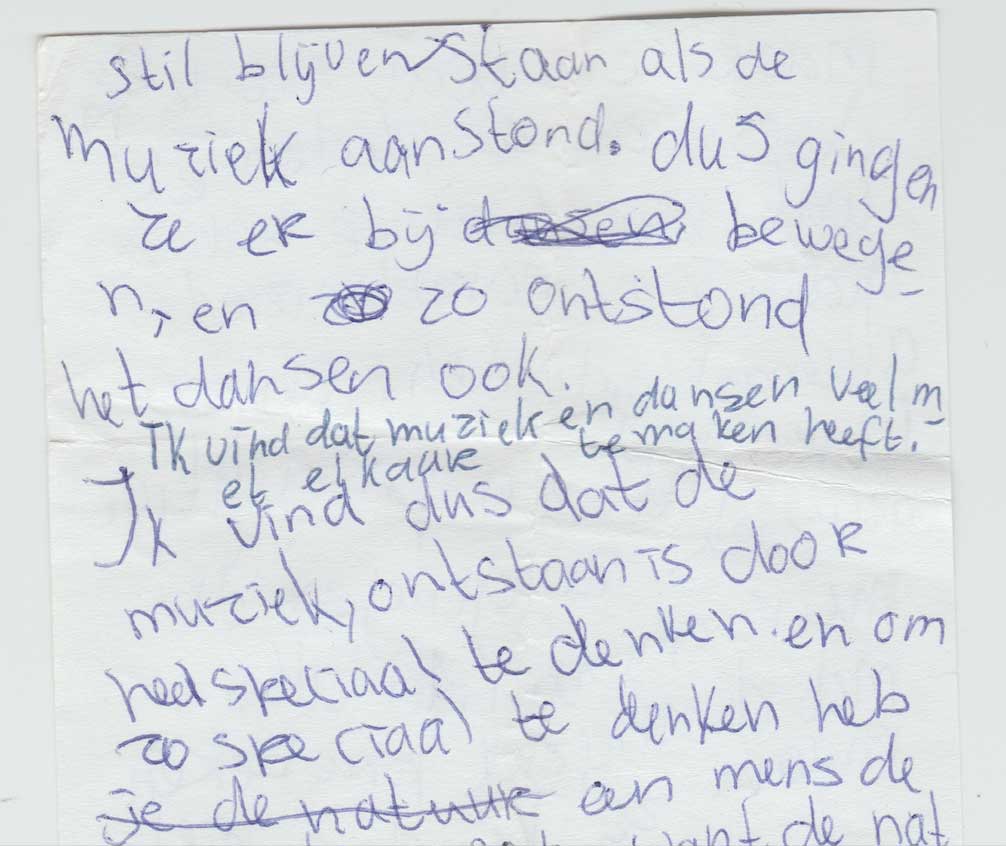 stil blijven staan als de
muziek aanstond. dus gingen
ze er bij dansen bewege-
n, en zo ontstond
het dansen ook.
Ik vind dat muziek en dansen veel m-
et elkaar te maken heeft.
Ik vind dus dat de
muziek, ontstaan is door
heel speciaal te denken. en om
zo speciaal te denken heb
je de natuur en mens de
want de nat